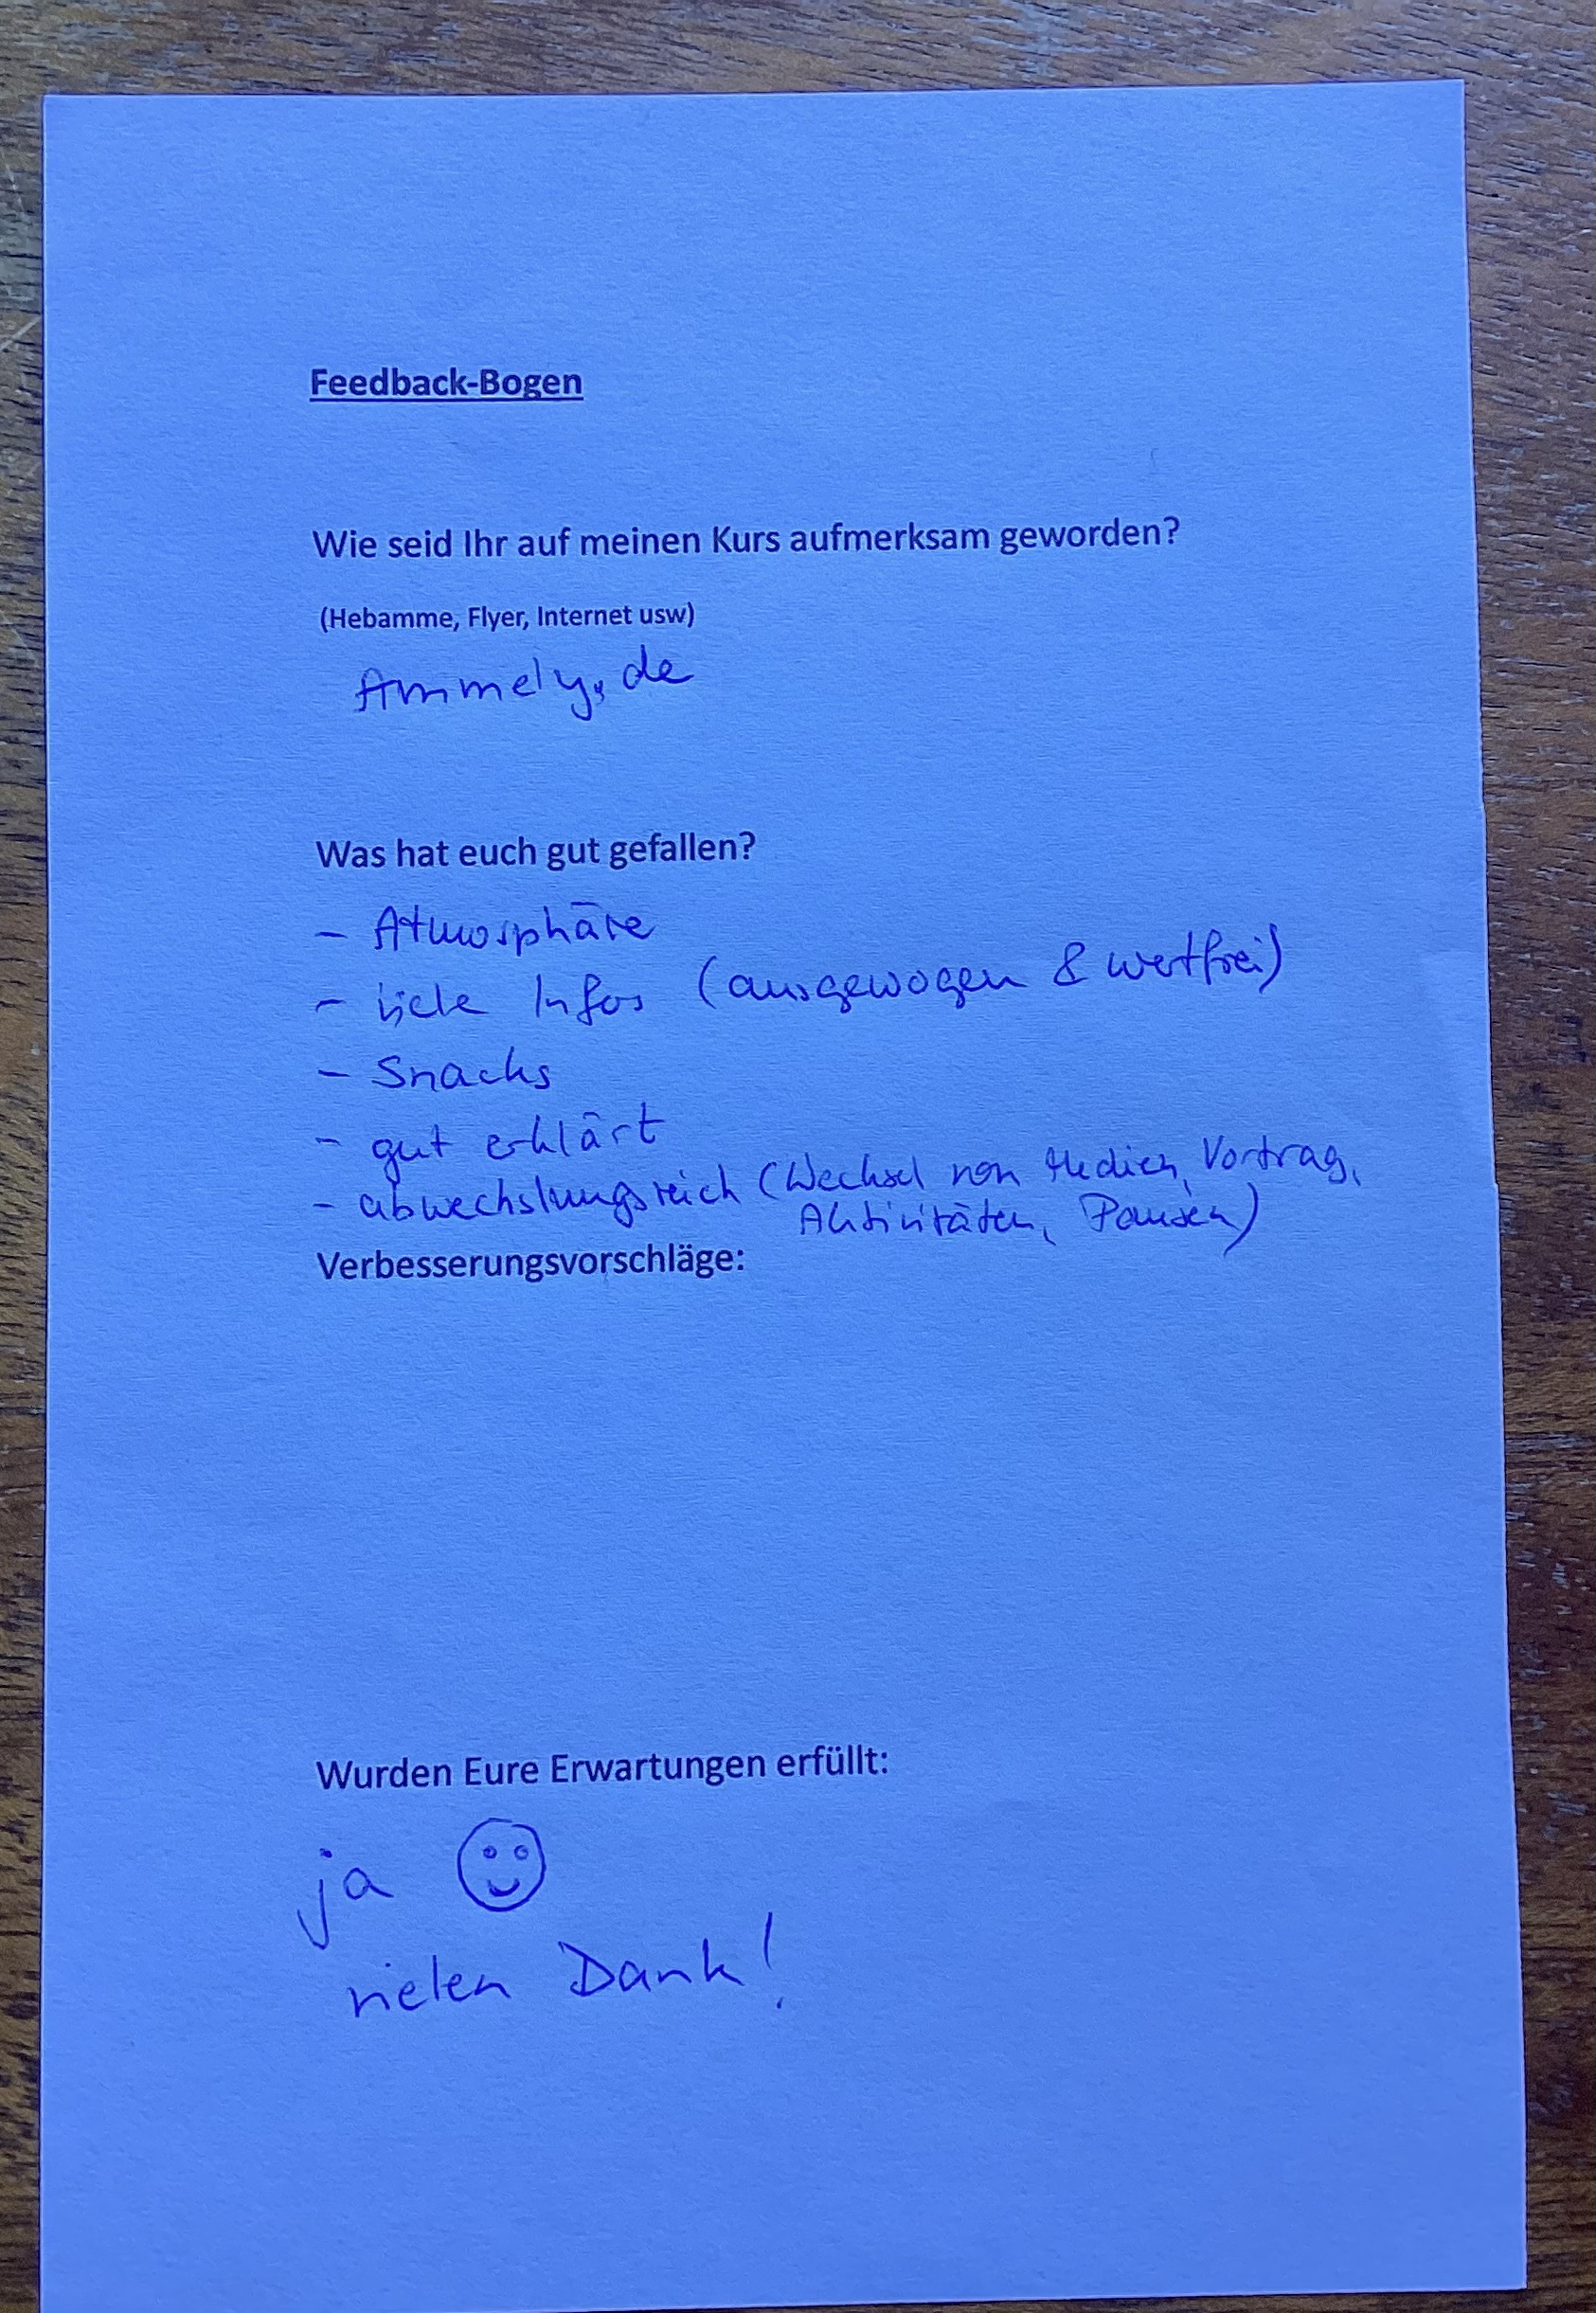 Feedback-Bogen
Wie seid Ihr auf meinen Kurs aufmerksam geworden?
(Hebamme, Flyer, Internet usw)
Ammely.de
Was hat euch gut gefallen?
- Atmosphäre
- viele Infos (ausgewogen & wertfrei)
- Snacks
- gut erklärt
- abwechslungsreich (Wechsel von Medien, Vortrag,
Aktivitäten, Pausen)
Verbesserungsvorschläge:
Wurden Eure Erwartungen erfüllt:
ja
vielen Dank!